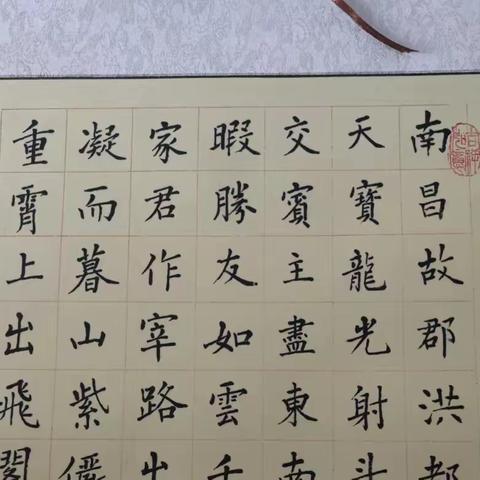 南昌故郡洪都
天寶龍光射斗
交賓主盡東南
暇勝友如雲千
家君作宰路出
凝而暮山紫儼
重霄上出飛閣